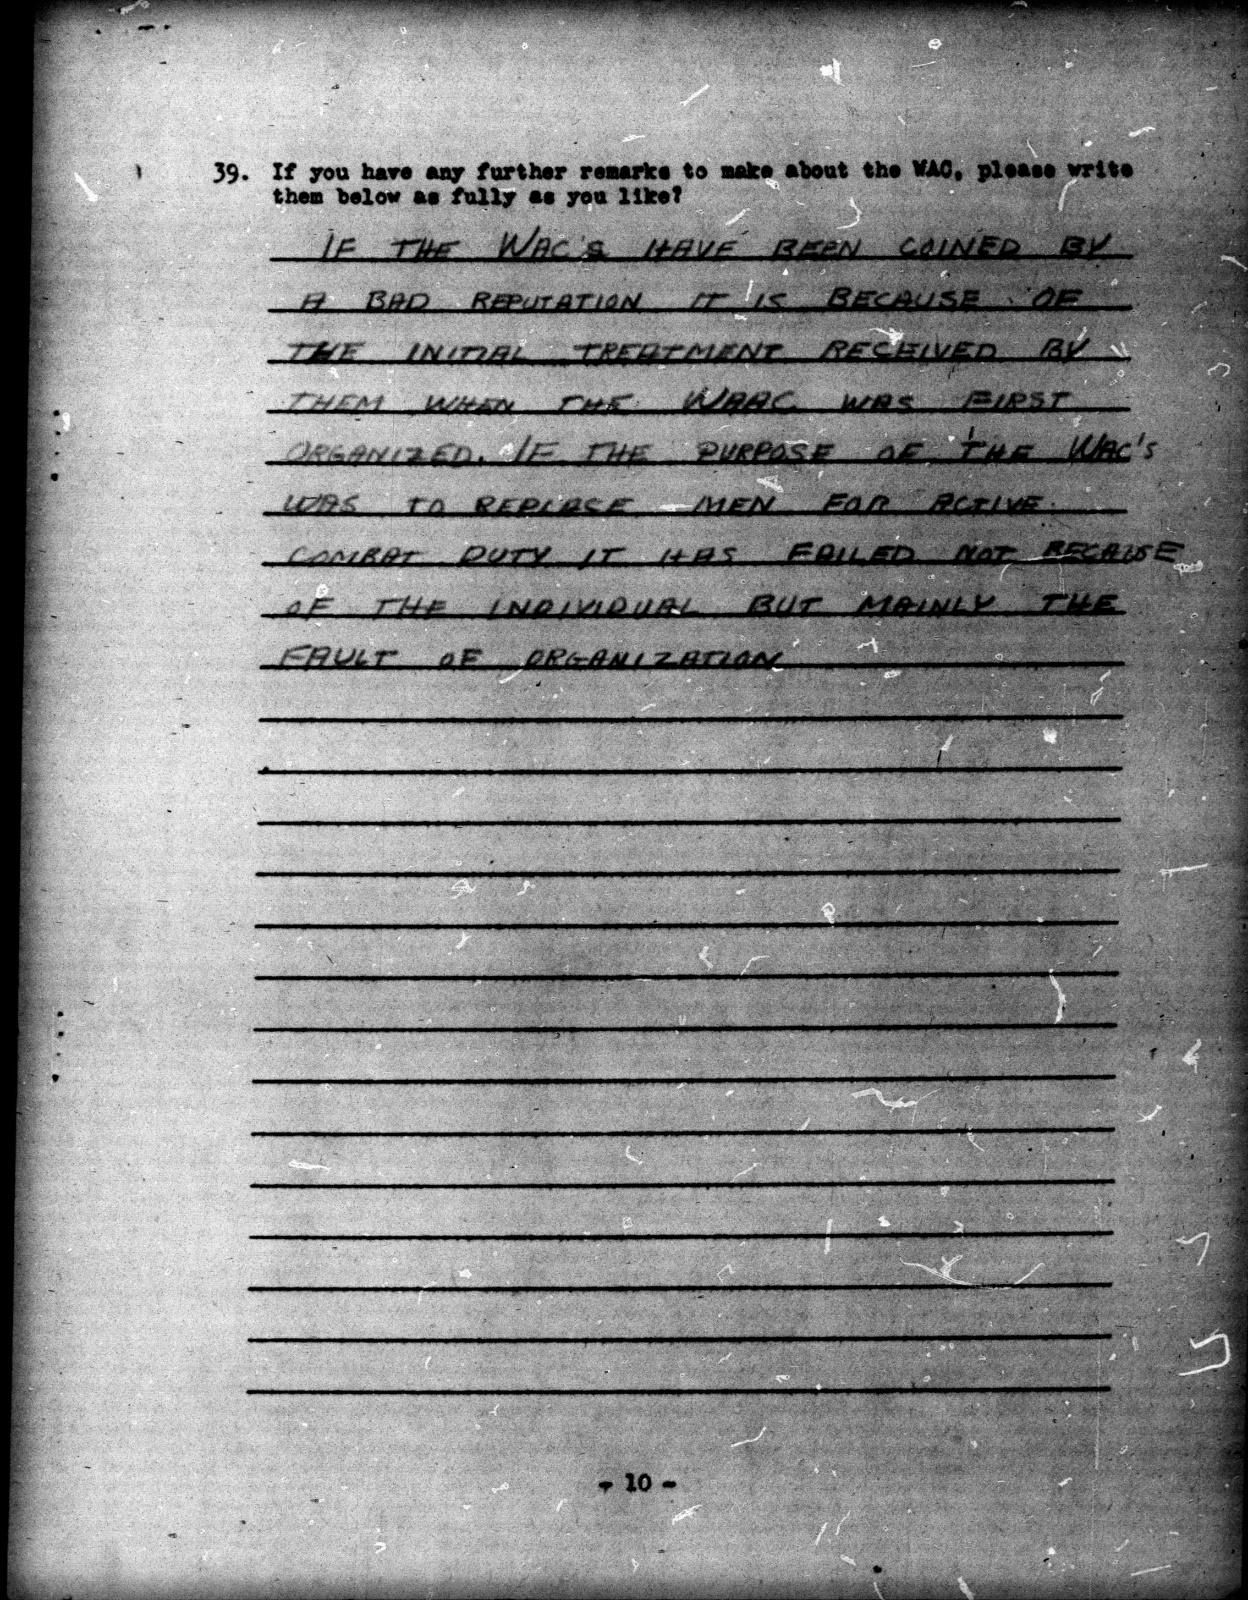 39. If you have any further remarks to make about the WAC, please write
them below as fully as you like?
IF THE WAC'S HAVE BEEN COINED BY
A BAD REPUTATION IT IS BECAUSE OF
THE INITIAL TREATMENT RECEIVED BY
THEM WHEN THE WAAC WAS FIRST
ORGANIZED. IF THE PURPOSE OF THE WAC'S
WAS TO REPLASE MEN FOR ACTIVE
COMBAT DUTY IT HAS FAILED NOT BECAUSE
OF THE INDIVIDUAL BUT MAINLY THE
FAULT OF ORGANIZATION
- 10 -